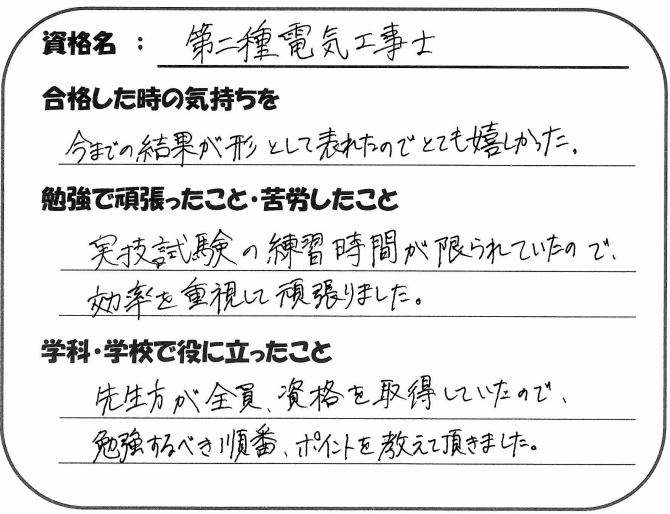 資格名 : 第二種電気工事士
合格した時の気持ちを
今までの結果が形として表れたのでとても嬉しかった。
勉強で頑張ったこと・苦労したこと
実技試験の練習時間が限られていたので、
効率を重視して頑張りました。
学科・学校で役に立ったこと
先生方が全員、資格を取得していたので、
勉強するべき順番、ポイントを教えて頂きました。